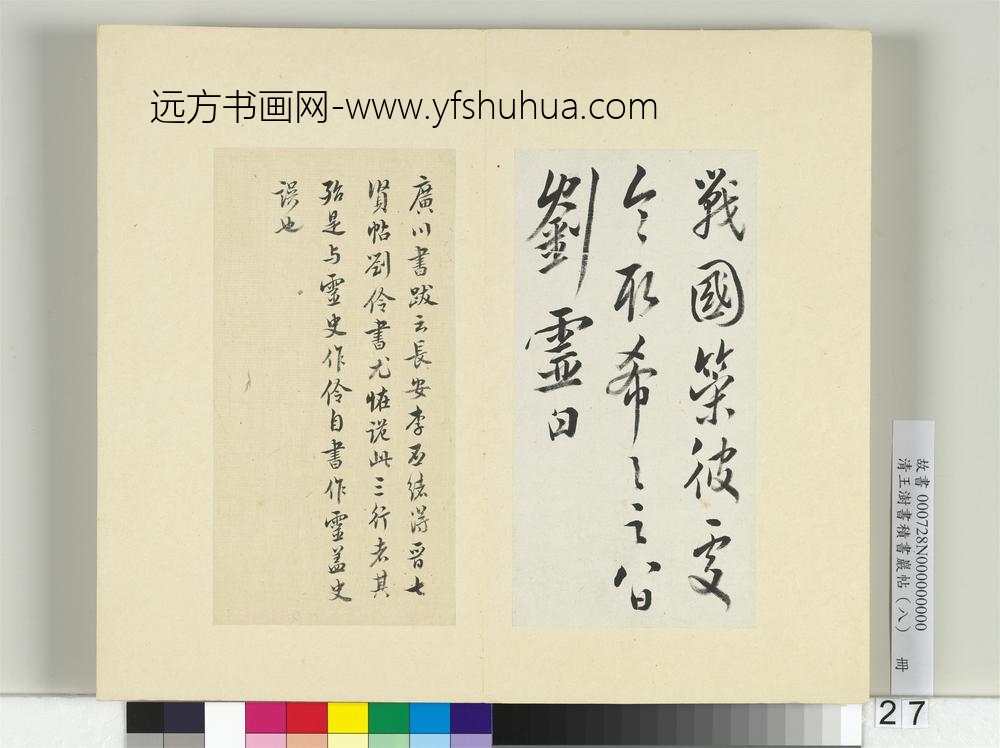 远方书画网-www.yfshuhua.com
戰國策彼處
今取希之之八日
劉靈白
廣川書跋云長安李丕緒得晉七
賢帖劉伶書尤怪詭此三行者其
殆是与靈史作伶自書作靈蓋史
誤也
故書 000728N000000000
清王澍書積書巖帖（八） 冊
27